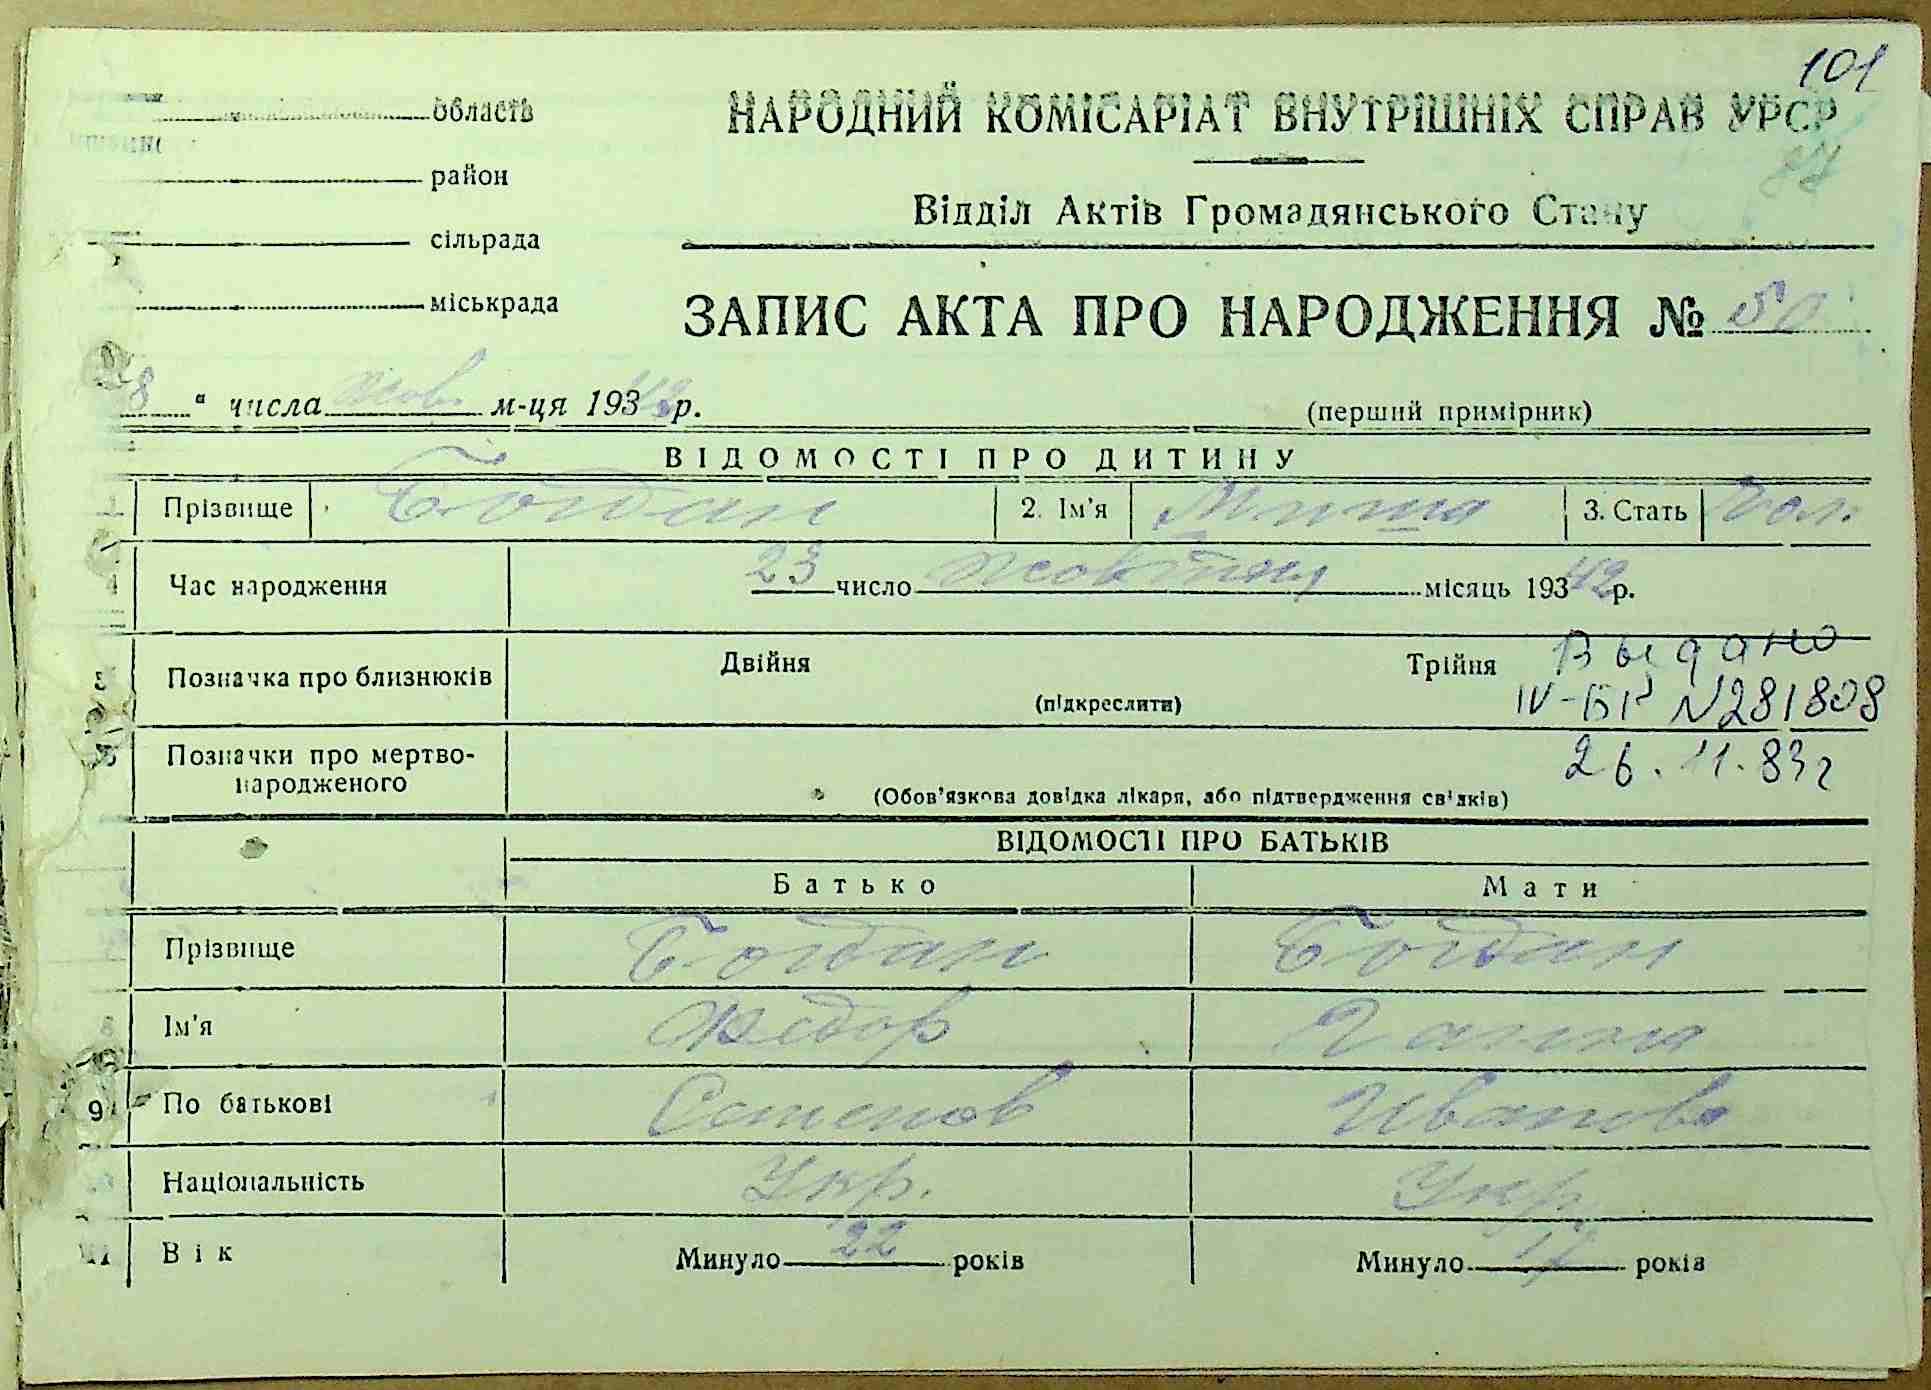 101
область
НАРОДНИЙ КОМІСАРІАТ ВНУТРІШНІХ СПРАВ УРСР
район
Відділ Актів Громадянського Стану
сільрада
міськрада
ЗАПИС АКТА ПРО НАРОДЖЕННЯ № 50
8 " числа жов. м-ця 193 42 р.
(перший примірник)
ВІДОМОСТІ ПРО ДИТИНУ
Прізвище Богдан 2. Ім'я Миша 3. Стать чол.
Час народження 23 число жовтня місяць 193 42 р.
Позначка про близнюків Двійня Трійня Выдано
(підкреслити) IV-БК N281808
Позначки про мертво-
народженого 26.11.83г
(Обов'язкова довідка лікаря, або підтвердження свідків)
ВІДОМОСТІ ПРО БАТЬКІВ
Батько Мати
Прізвище Богдан Богдан
Ім'я Федор Ганна
9 По батькові Степов Иванов
Національність Укр. Укр.
11 Вік Минуло 22 років Минуло 17 років